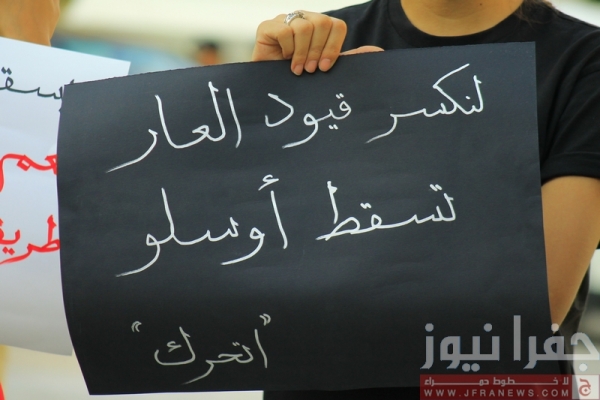 لنكسر قيود العار
تسقط أوسلو
"اتحرك"
جفرا نيوز
لا خطوط حمراء
WWW.JFRANEWS.COM